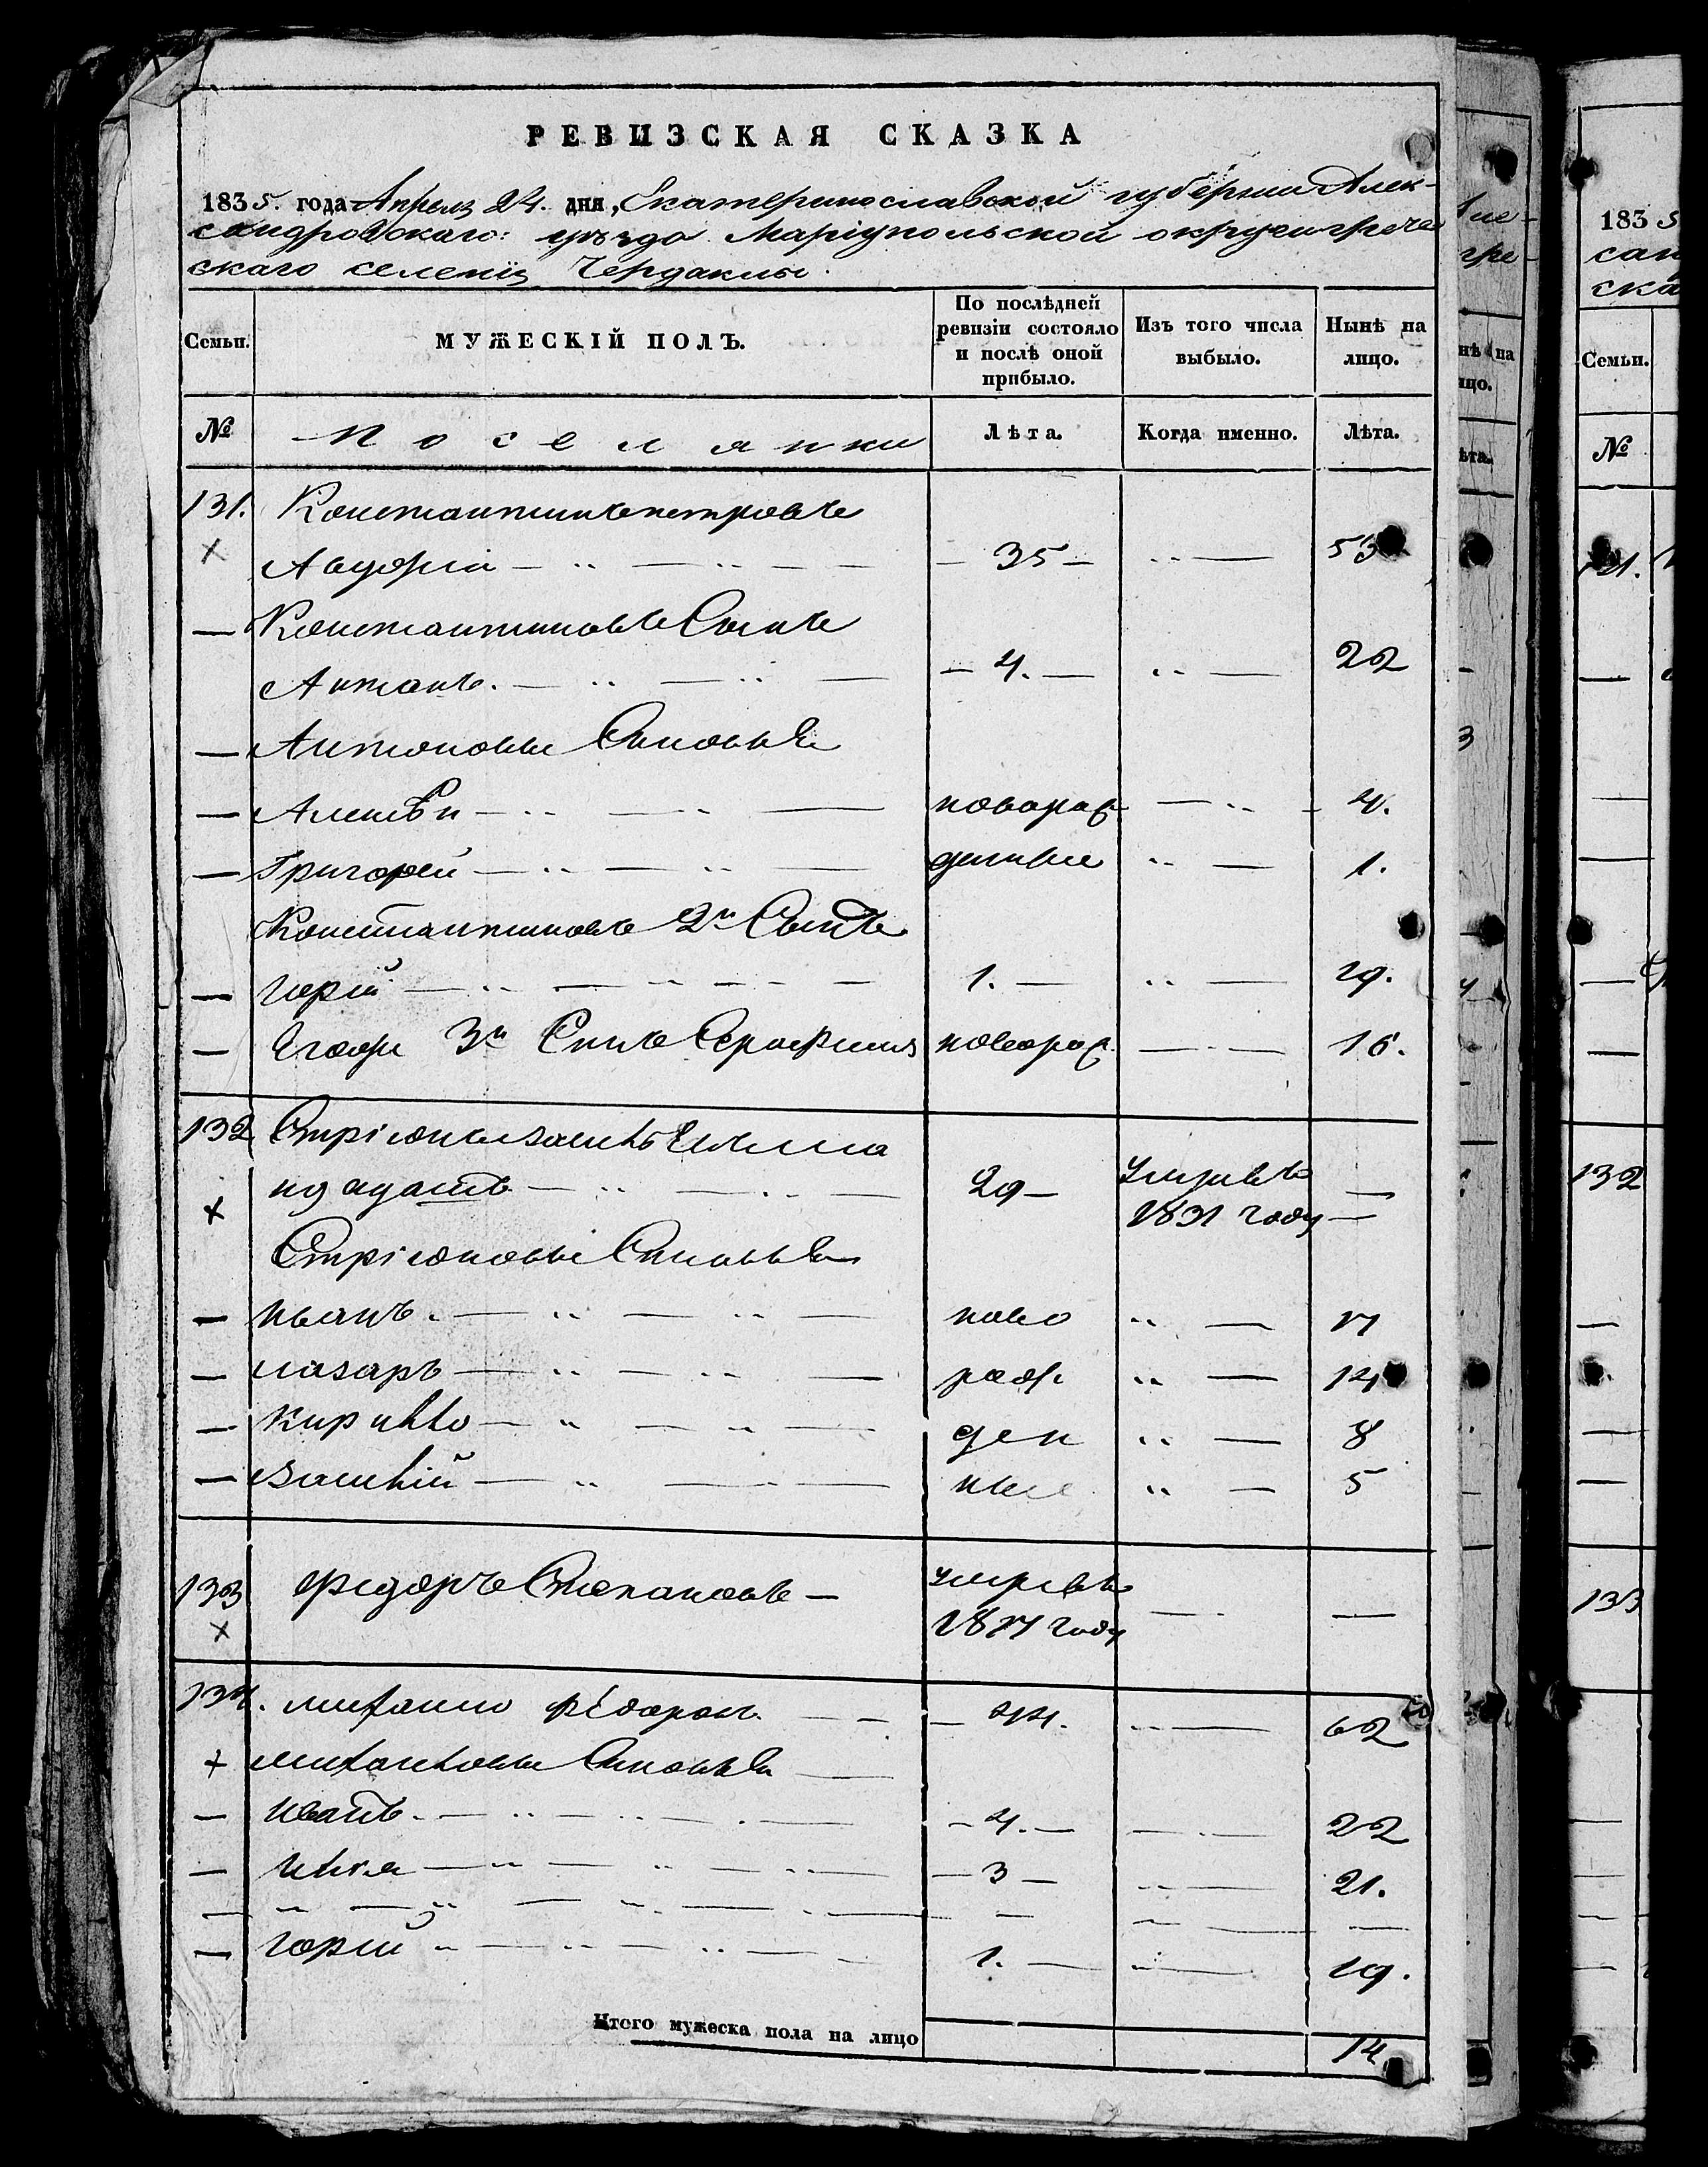 РЕВИЗСКАЯ СКАЗКА
1835. года Апреля 24. дня, Екатеринославской губернии Алек-
сандровскаго: уѣзда Маріупольской округи грече
скаго селенія Чердаклы.
Семьи. МУЖЕСКІЙ ПОЛЪ. По послѣдней ревизіи состояло и послѣ оной прибыло. Изъ того числа выбыло. Нынѣ на лицо.
№ Поселянки Лѣта. Когда именно. Лѣта.
131. Константинъ петровъ
— 35 — 53
Константиновъ Сынъ
Антонъ. — 4. — 22
Антоновы Сыновья
Алексѣи новорож 4.
Григорей денные 1.
Константиновъ 2й Сынъ
Юрій 1. — 19.
3й Сынъ новорож. 16.
132
29 — умре въ
1831 году —
Сыновья
иванъ. ново 17
лазаръ рож 14
Кирилло ден 8
Василій ные 5
133 Федоръ Степановъ — умре въ
1817 году
134. михаило Федоровъ — 44. 62
михаиловы Сыновья
иванъ. — 4. — 22
илья — 3 — 21.
Юрій 1. — 19.
Итого мужеска пола на лицо 14
183 5
сан
ска
Семьи.
№
131.
132
133